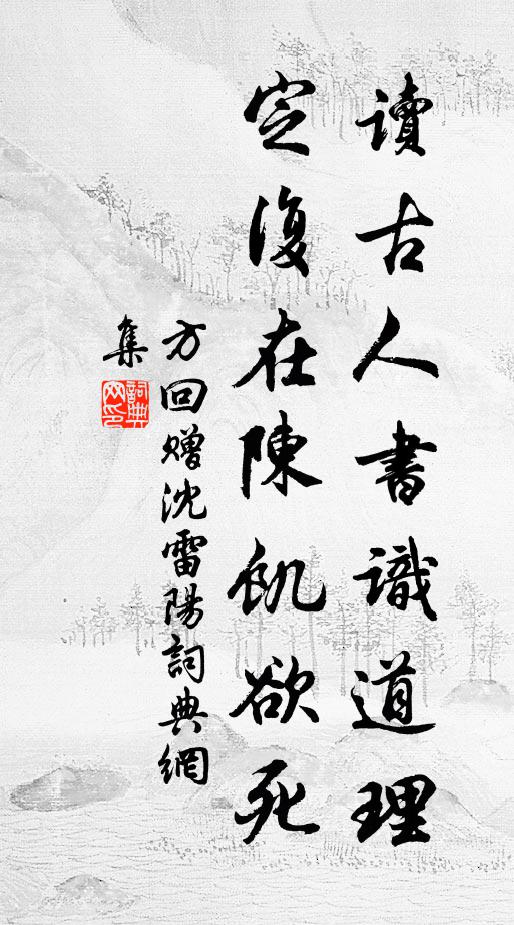 讀古人書識道理
定復在陳飢欲死
方回贈沈雷陽詞典網
集
詞典網印